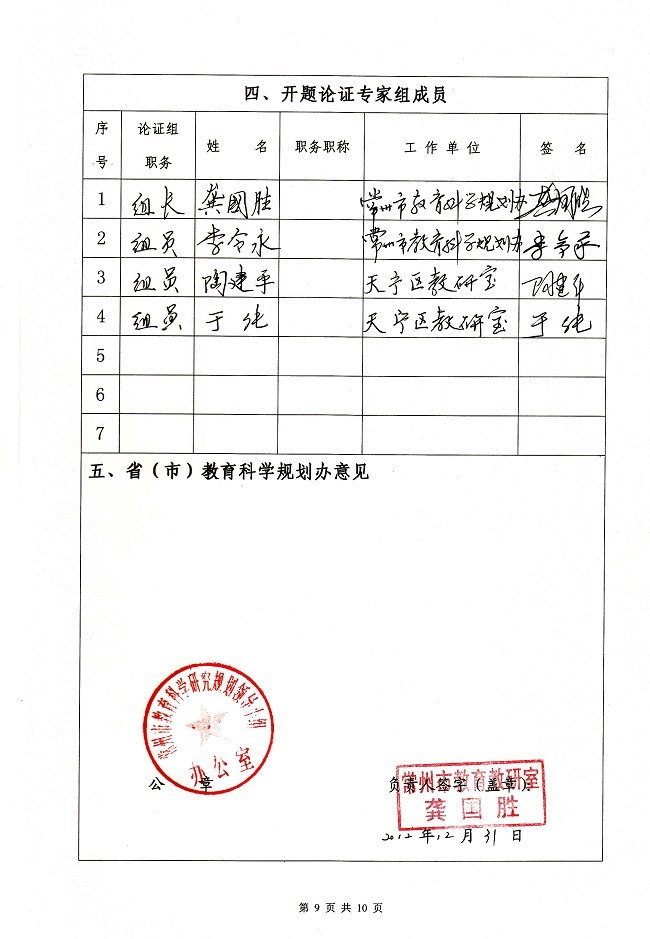 四、开题论证专家组成员
序号 论证组职务 姓 名 职务职称 工作单位 签 名
1 组长 龚國胜 常州市教育科学规划办 龚国胜
2 组员 李令永 常州市教育科学规划办 李令永
3 组员 陶建平 天宁区教研室 陶建平
4 组员 于纯 天宁区教研室 于纯
5
6
7
五、省（市）教育科学规划办意见
常州市教育科学研究规划领导小组
办公室
公 章
负责人签字（盖章）：
常州市教育教研室
龚国胜
2012年12月31日
第 9 页 共 10 页